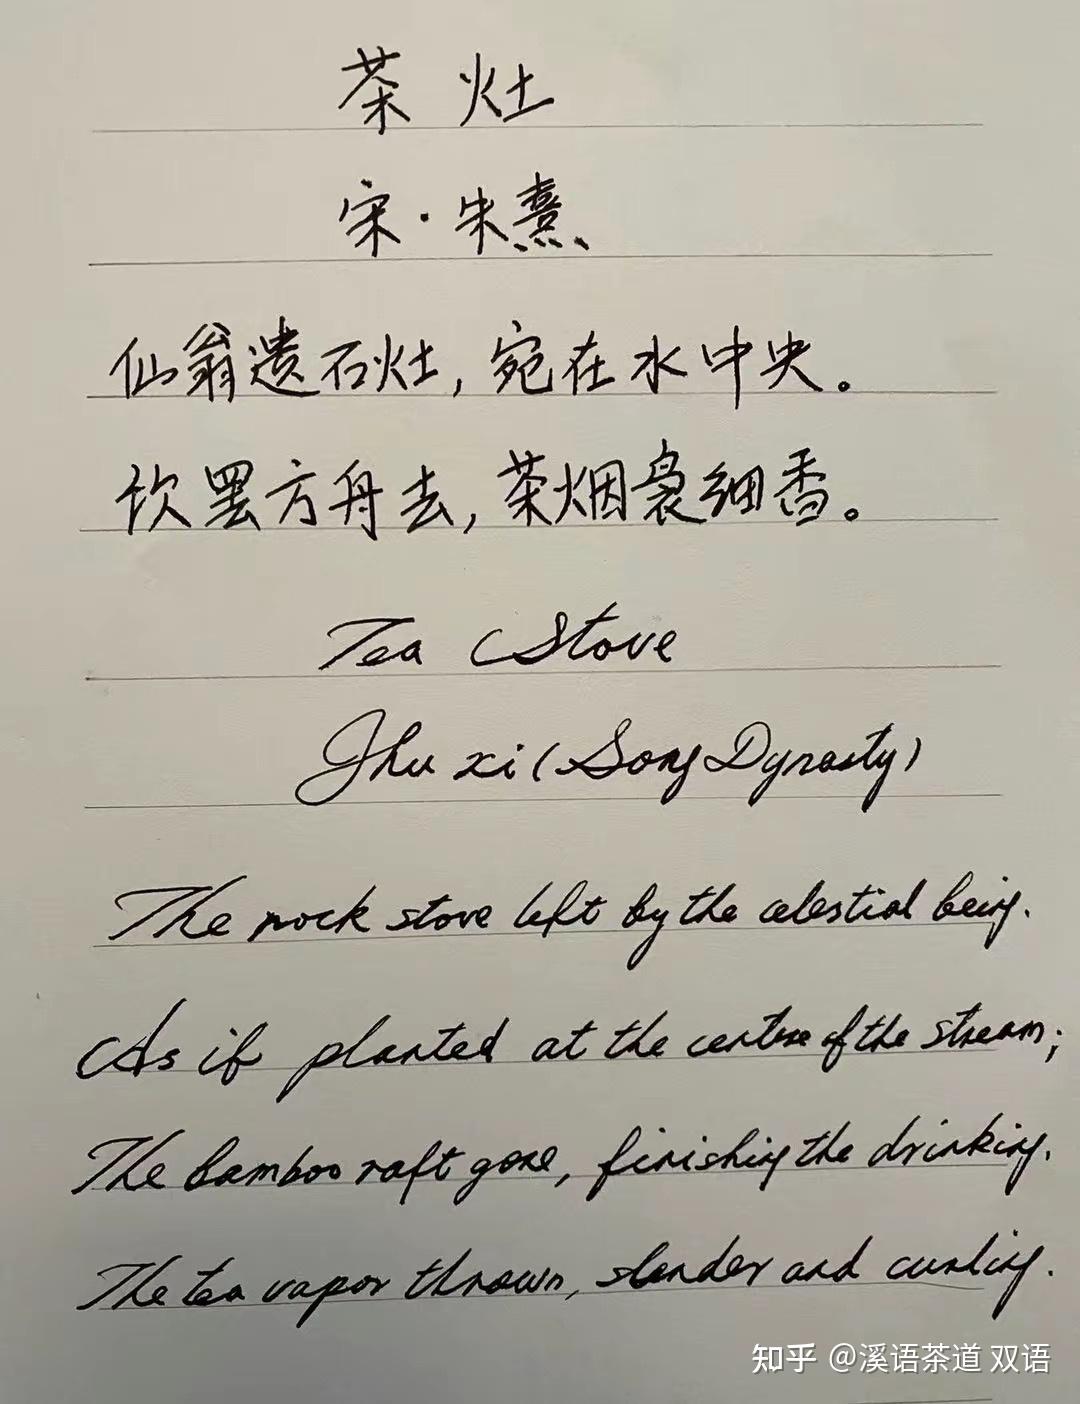 茶灶
宋·朱熹
仙翁遗石灶，宛在水中央。
饮罢方舟去，茶烟袅细香。
Tea Stove
Zhu xi (Song Dynasty)
The rock stove left by the celestial being.
As if planted at the centre of the stream;
The bamboo raft gone, finishing the drinking.
The tea vapor thrown, slender and curling.
知乎 @溪语茶道 双语